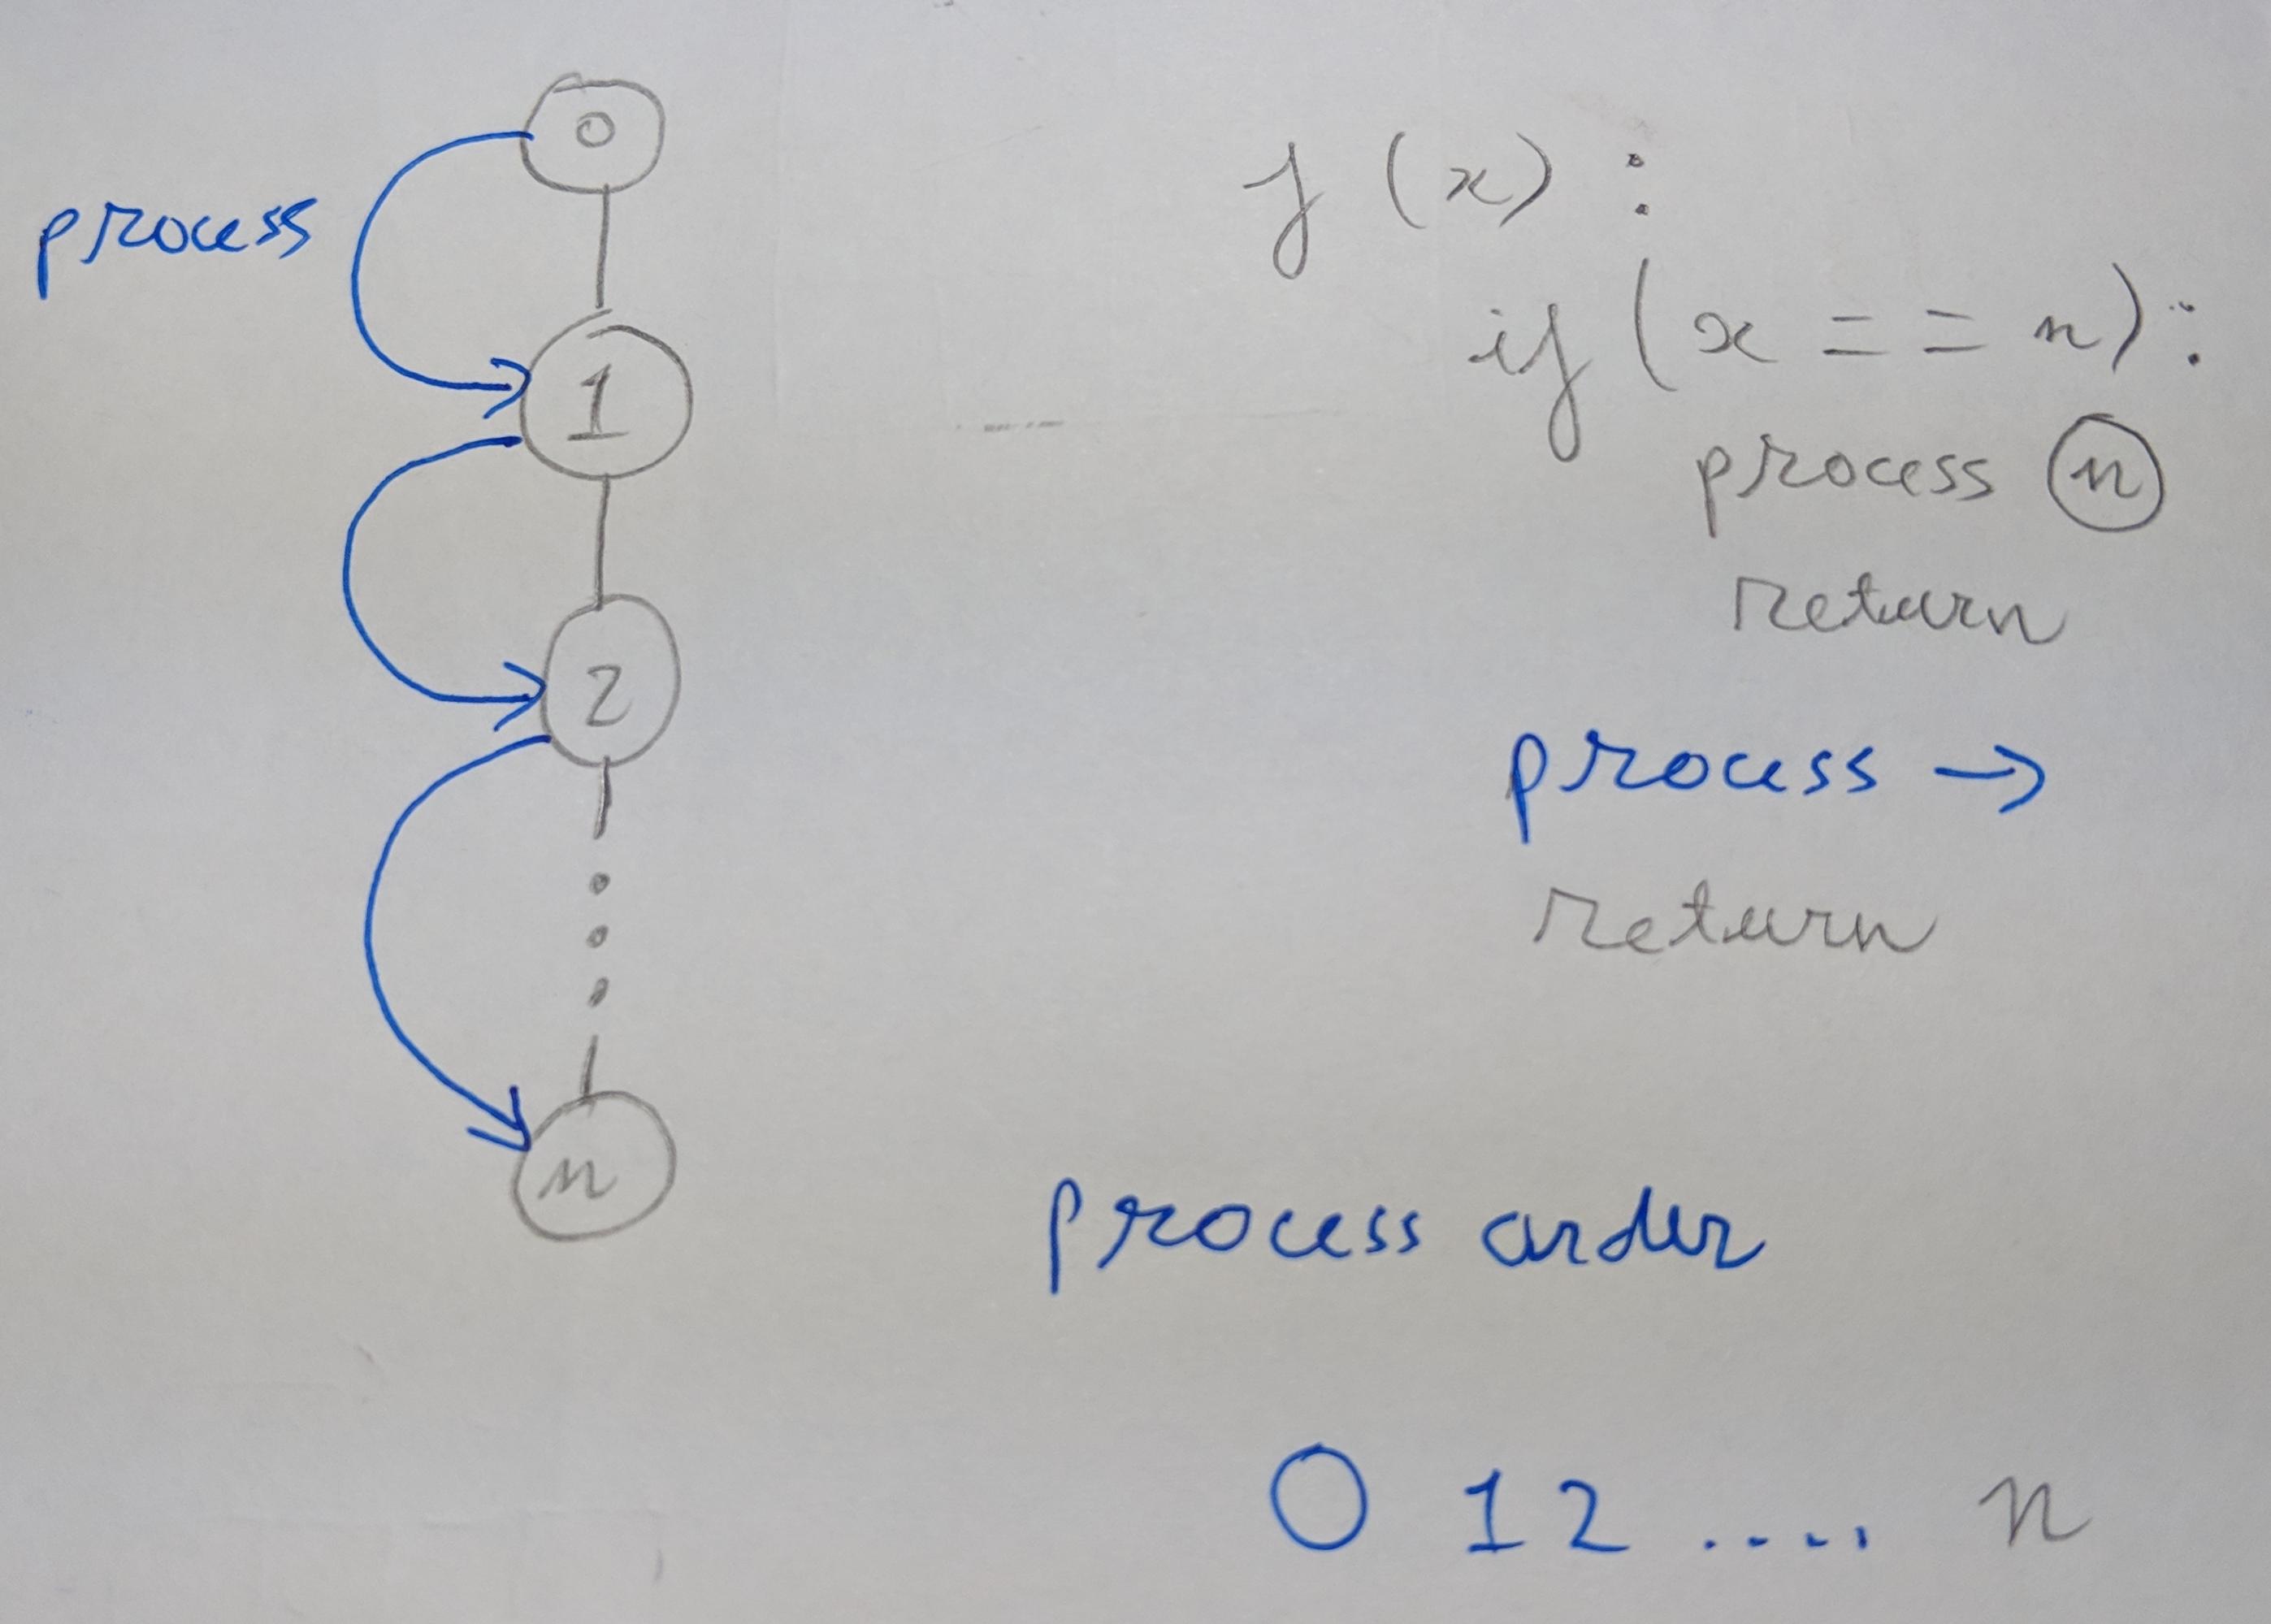 0
process
1
2
n
f(x):
if(x==n):
process n
return
process →
return
process order
0 1 2 .... n